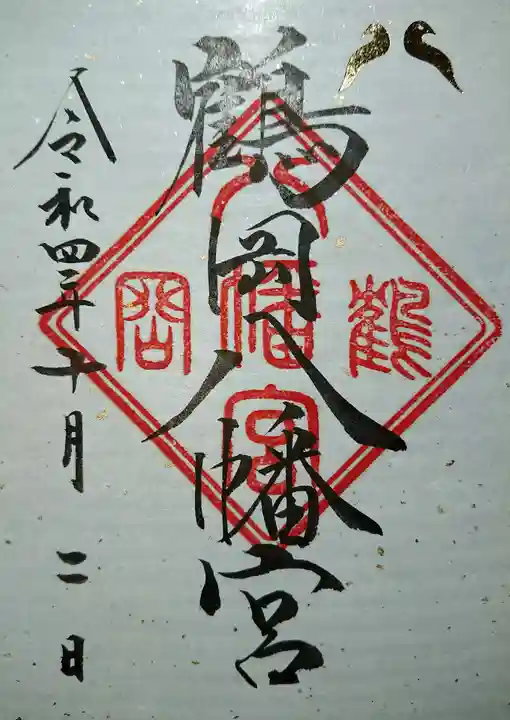 鶴岡八幡宮
鶴
八幡宮
岡
令和四年十月二日